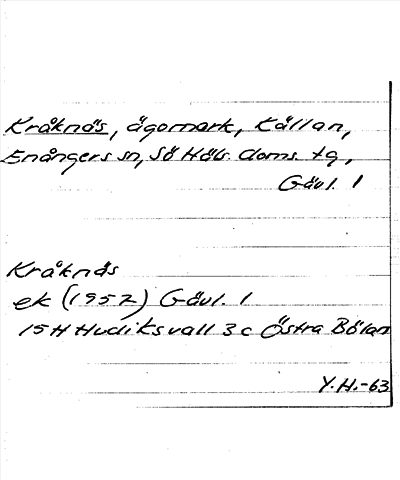 Kråknäs, ägomark, Källan,
Enångers sn, Sö Häls. doms. tg,
Gävl. l
Kråknäs
ek (1957) Gävl. l
15H Hudiksvall 3c Östra Bölan
Y.H.-63